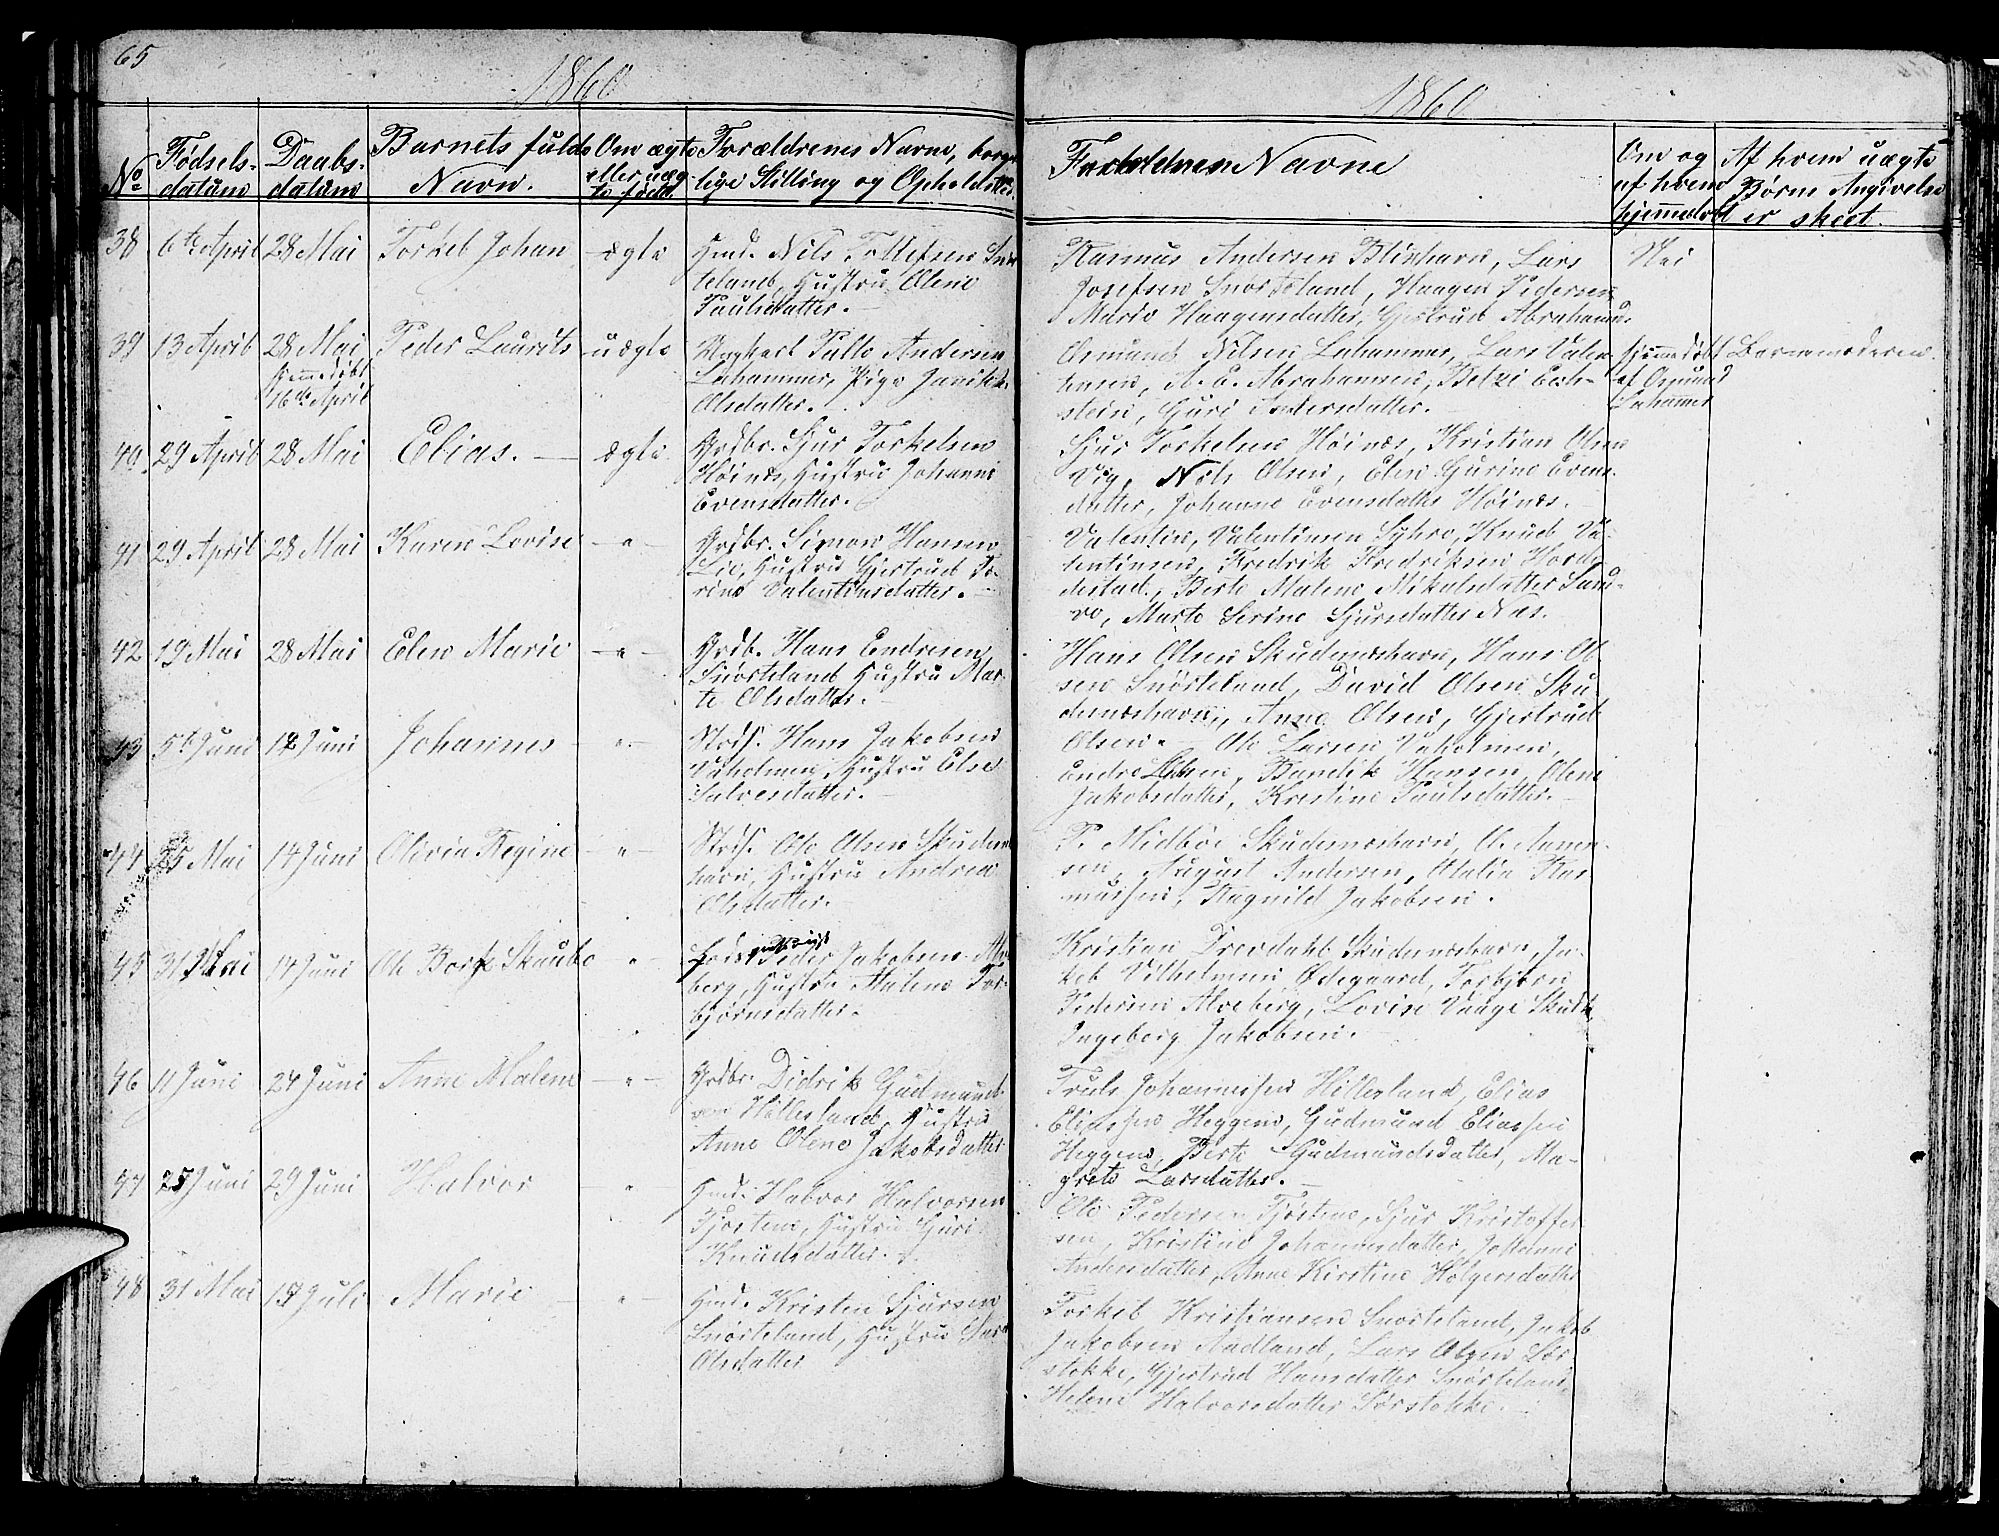 65
1860
1860
No
Fødsels-
datum
Daabs-
datum
Barnets fulde
Navn.
Om ægte
eller uæg-
te født.
Forældrenes Navne, borger-
lige Stilling og Opholdsted.
Faddernes Navne
Om og
af hvem
hjemmedøbt
Af hvem uægte
Børns Angivelse
er skeet.
38 6te April 28 Mai Torkel Johan ægte
Hmd. Nils Tollefsen Snør-
teland, Hustru Olene
Paulsdatter.
Rasmus Andersen Blikshavn, Lars
Josefsen Snørteland, Haagen Pedersen
Marie Haagensdatter, Gjertrud Abrahams.
Nei
39 13 April 28 Mai
hjemmedøbt
16de April
Peder Laurits uægte
Ungkarl Andersen
Lahammer, Pige
Olsdatter.
Osmund Nilsen Lahammer, Lars Valen-
tinsen, A. E. Abrahamsen,
stein, Guri Andersdatter.
hjemmedøbt
af Osmund
Lahammer
Barnemoderen.
40 29 April 28 Mai Elias. ægte
Grdbr. Sjur Torkelsen
Høines, Hustru Johanne
Evensdatter.
Sjur Torkelsen Høines, Kristian Olsen
Vig, Nels Olsen, Elen Gurine Evens-
datter, Johanne Evensdatter Høines.
41 29 April 28 Mai Karen Lovise - " -
Grdbr. Simon Hansen
Lie, Hustru Gjertrud To-
rine Valentinsdatter.
Valentin Valentinsen Syhre, Knud Va-
lentinsen, Fredrik Fredriksen Hovde
stad, Berte Malene Mikalsdatter Sand-
ve, Marte Serine Sjursdatter Næs.
42 19 Mai 28 Mai Elen Marie - " -
Grdb. Hans Endresen
Snørteland Hustru Mar-
te Olsdatter.
Hans Olsen Skudesneshavn, Hans Ol-
sen Snørteland, David Olsen Sku-
desneshavn, Anne Olsen, Gjertrud
Olsen.
43 5te Juni 12 Juni Johannes - " -
Strds. Hans Jakobsen
Vaholmen, Hustru Else
Salvesdatter.
Ole Larsen Vaholmen,
Endre Olsen, Bendik Hansen, Olene
Jakobsdatter, Kristine Paulsdatter.
44 25 Mai 14 Juni Olivia Regine "
Strds. Ole Olsen Skudesnes
havn, Hustru Andrea
Olsdatter.
P. Midbøe Skudesneshavn, O. Aanen-
sen, August Andersen, Atalia Ras
mussen, Ragnild Jakobsen.
45 31 Mai 14 Juni Ole Skaubo "
Peder Jakobsen Alve-
berg, Hustru Malene Tor-
bjørnsdatter.
Kristian Drevdahl Skudesneshavn, Ja-
kob Vilhelmsen Ødegaard, Torbjørn
Pedersen Alveberg, Lovise Vaage Skudes
Ingeborg Jakobsen.
46 11 Juni 24 Juni Anne Malene - " -
Grdbr. Didrik Gudmund-
sen Hillesland, Hustru
Anne Olene Jakobsdatter
Truls Johannessen Hillesland, Elias
Eliassen Heggem, Gudmund Eliassen
Heggem, Berte Gudmundsdatter, Ma-
grete Larsdatter.
47 25 Juni 29 Juni Halvor "
Hmd. Halvor Halvorsen
Tjøsteno, Hustru Guri
Knudsdatter.
Ole Pedersen Tjøsteno, Sjur Kristoffer
sen, Kristine Johannesdatter, Johanne
Andersdatter, Anne Kirstine Holgersdatter
48 31 Mai Juli Marie "
Hmd. Kristen Sjursen
Snørteland, Hustru
Olsdatter
Torkel Kristiansen Snørteland, Jakob
Jakobsen Aadland, Lars Olsen Sør
stokke, Gjertrud Hansdatter Snørteland
Helene Halvorsdatter Sørstokke.